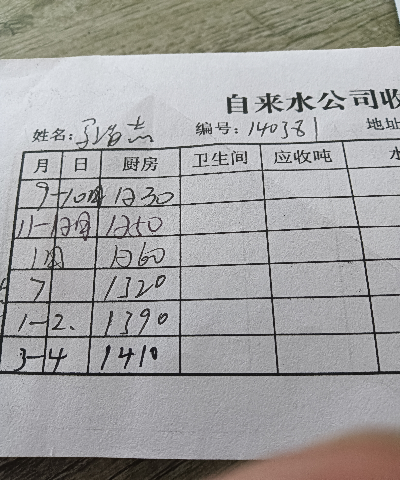 自来水公司收
姓名: 编号: 140381 地址
月 日 厨房 卫生间 应收吨 水
9-10月 1230
11-12月 1250
1月 1260
7 1320
1-2. 1390
3-4 1410